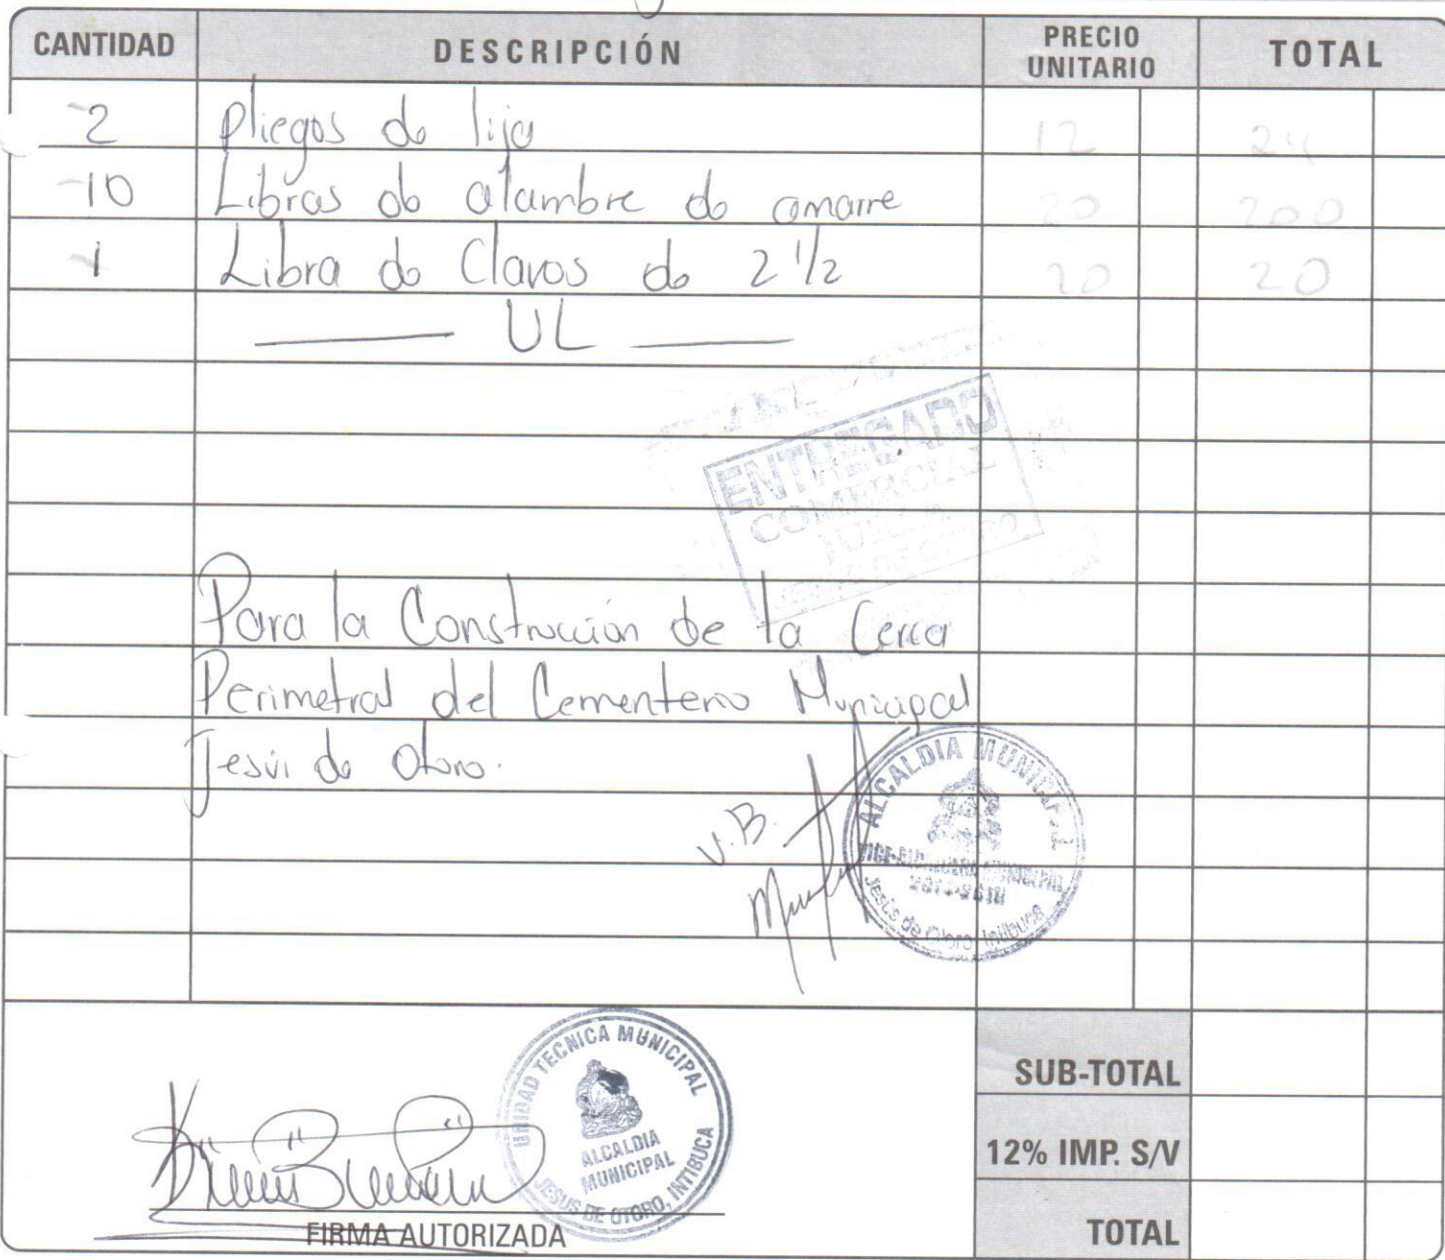 CANTIDAD DESCRIPCIÓN PRECIO UNITARIO TOTAL
2 pliegos de lija 12 24
10 Libras de alambre de amarre 20 200
1 Libra de Clavos de 2 1/2 20 20
UL
ENTREGADO
COMERCIAL
Para la Construcción de la Cerca
Perimetral del Cementerio Municipal
Jesús de Otoro.
V.B.
ALCALDIA MUNICIPAL
Jesús de Otoro, Intibucá
UNIDAD TECNICA MUNICIPAL
ALCALDIA
MUNICIPAL
JESUS DE OTORO, INTIBUCA
FIRMA AUTORIZADA
SUB-TOTAL
12% IMP. S/V
TOTAL